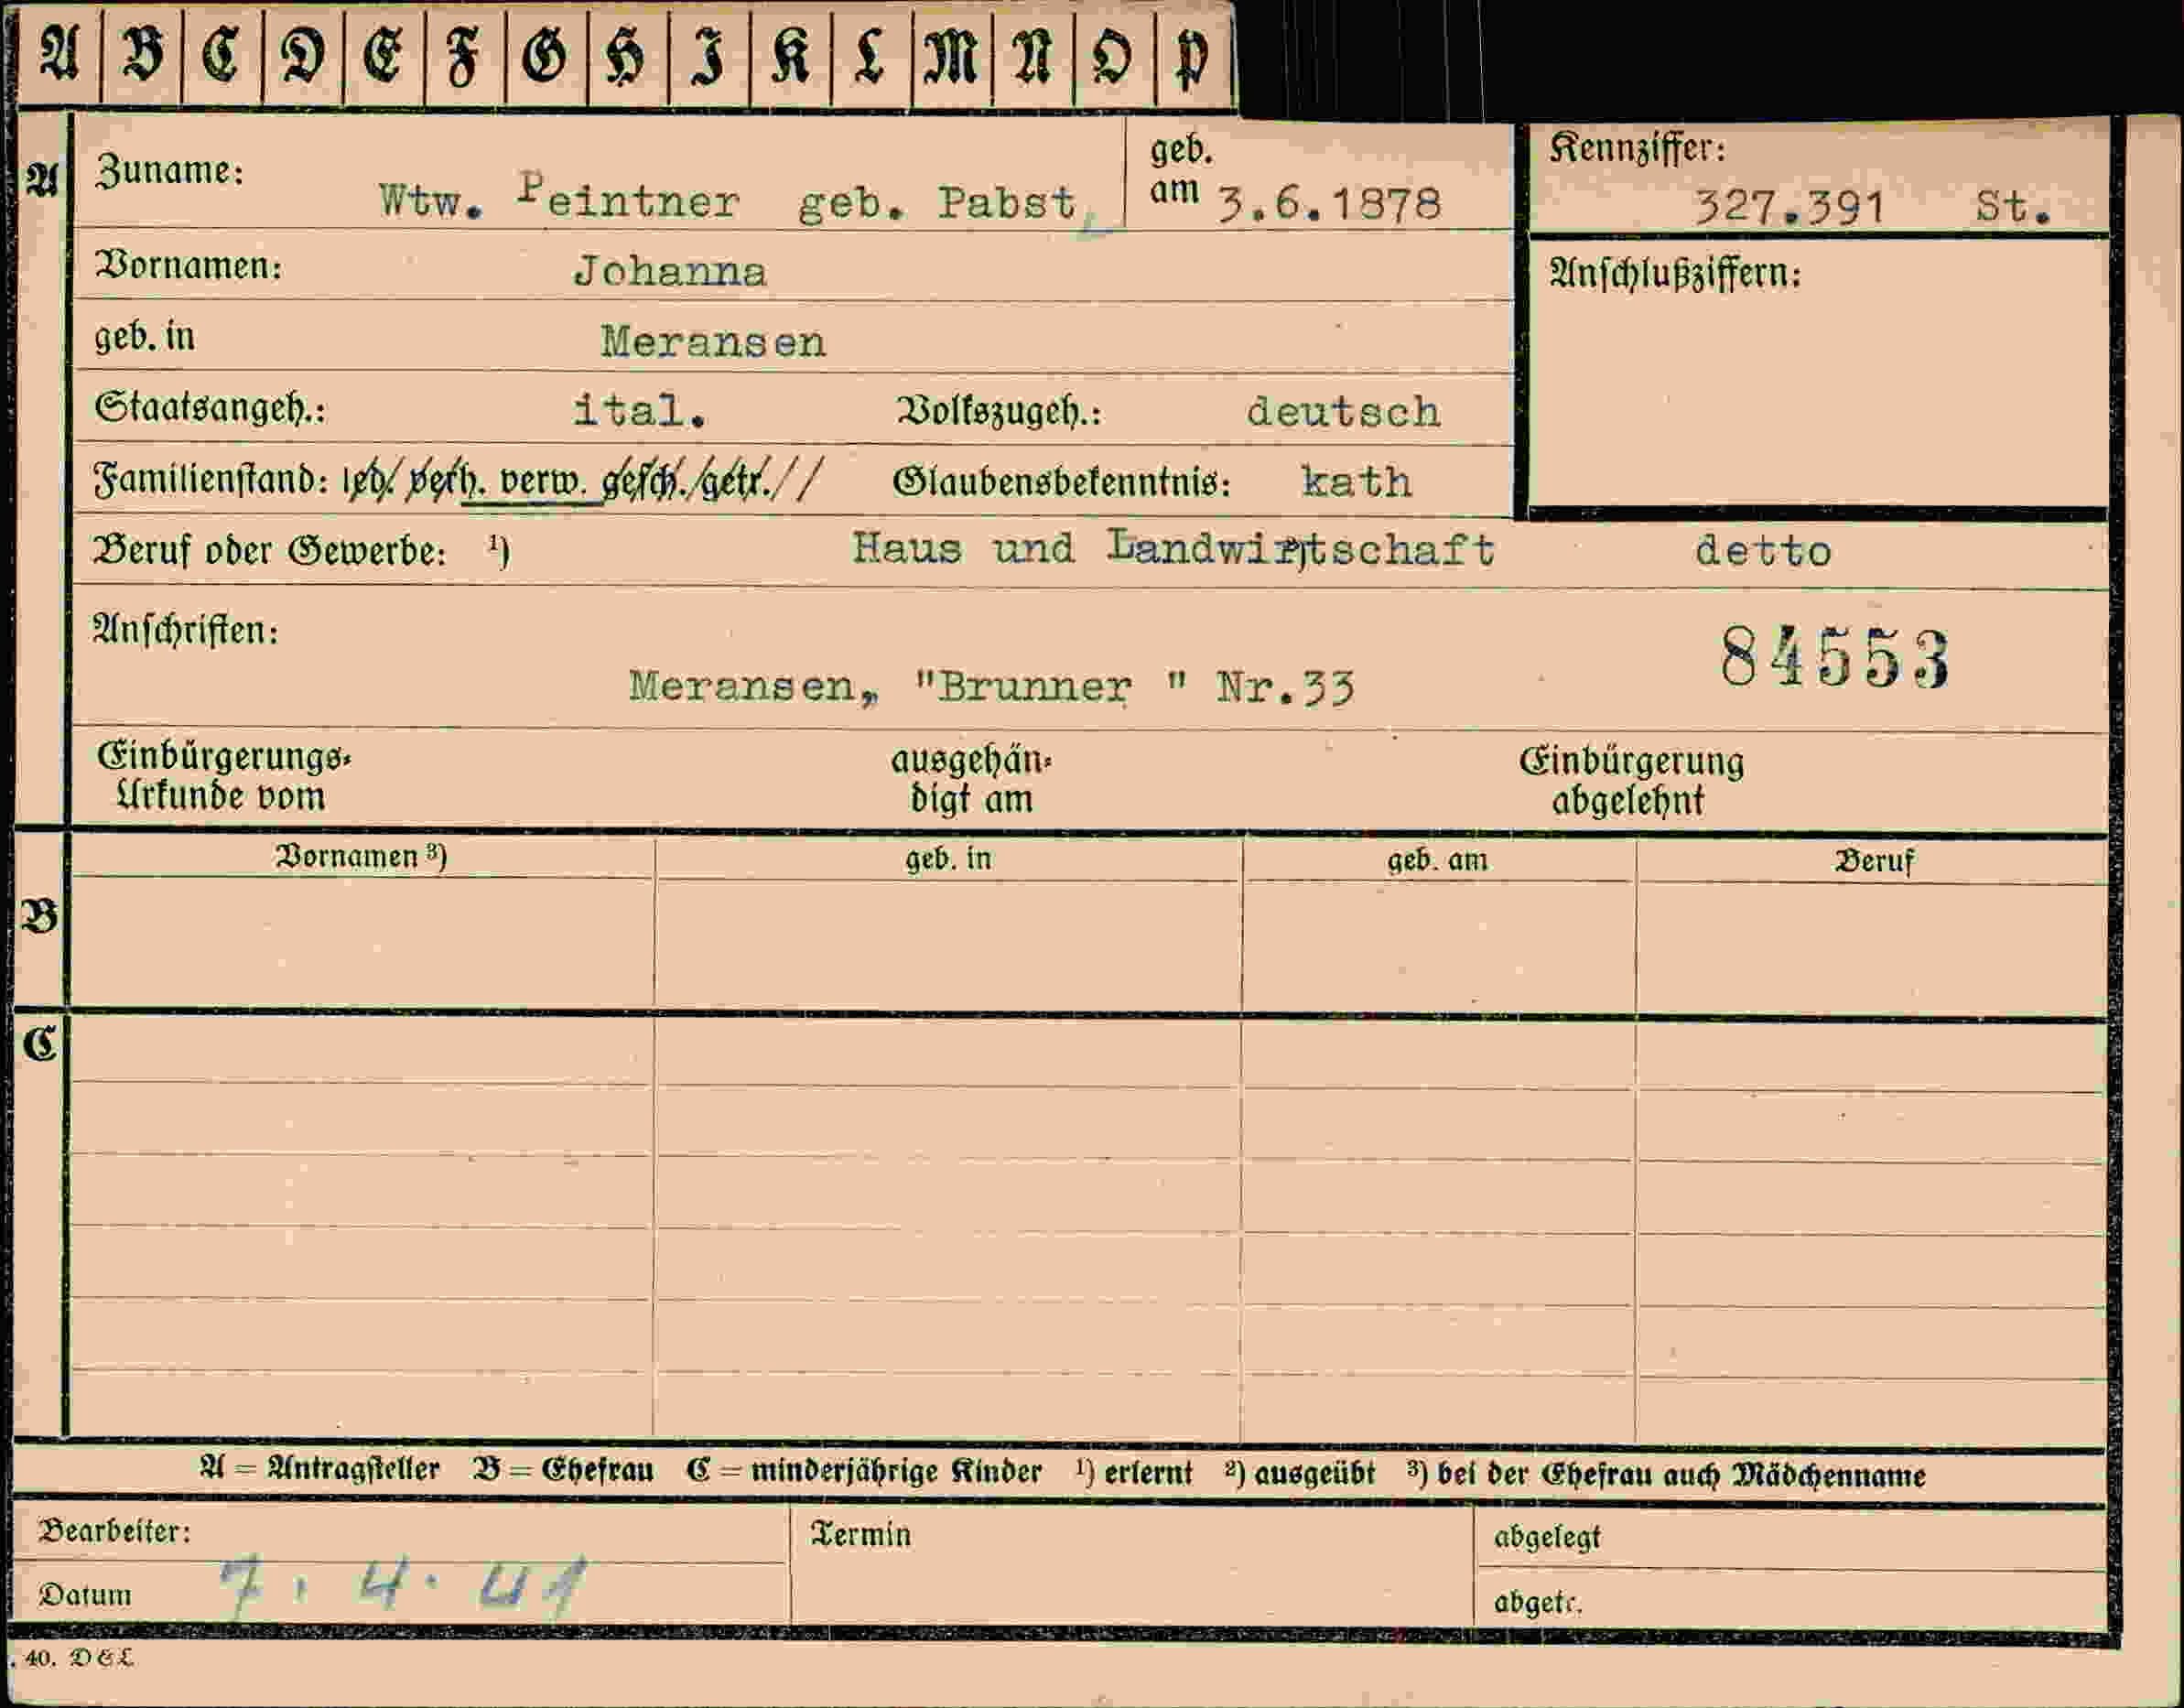 A B C D E F G H I K L M N O P
A
Zuname: Wtw. Peintner geb. Pabst geb. am 3.6.1878
Kennziffer: 327.391 St.
Vornamen: Johanna
Anschlußziffern:
geb. in Meransen
Staatsangeh.: ital. Volkszugeh.: deutsch
Familienstand: led. verh. verw. gesch. getr. Glaubensbekenntnis: kath
Beruf oder Gewerbe: ¹) Haus und Landwirtschaft detto
Anschriften: 84553
Meransen, "Brunner " Nr.33
Einbürgerungs- ausgehän- Einbürgerung
Urkunde vom digt am abgelehnt
Vornamen ³) geb. in geb. am Beruf
B
C
A = Antragsteller B = Ehefrau C = minderjährige Kinder ¹) erlernt ²) ausgeübt ³) bei der Ehefrau auch Mädchenname
Bearbeiter: Termin abgelegt
Datum 7. 4. 41 abgetr.
. 40. D & L